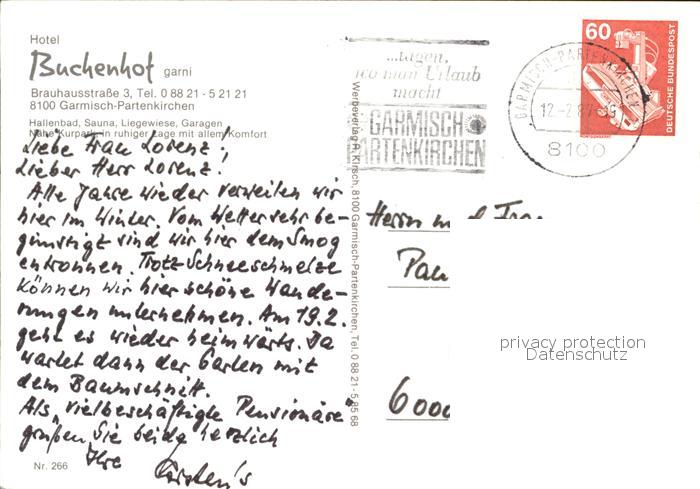 Hotel
Buchenhof garni
Brauhausstraße 3, Tel. 0 88 21 - 5 21 21
8100 Garmisch-Partenkirchen
Hallenbad, Sauna, Liegewiese, Garagen
Nähe Kurpark, in ruhiger Lage mit allem Komfort
Liebe Frau Lorenz!
Lieber Herr Lorenz!
Alle Jahre wieder verweilen wir
hier im Winter. Vom Wetter sehr be-
günstigt sind wir hier dem Smog
entronnen. Trotz Schneeschmelze
können wir hier schöne Wande-
rungen unternehmen. Am 19.2.
geht es wieder heimwärts. Da
wartet dann der Garten mit
dem Baumschnitt.
Als „vielbeschäftigte Pensionäre"
grüßen Sie beide herzlich
Ihre
Nr. 266
Werbeverlag R. Kirsch, 8100 Garmisch-Partenkirchen, Tel. 0 88 21 - 5 85 68
...tagen,
wo man Urlaub
macht
GARMISCH
PARTENKIRCHEN
GARMISCH-PARTENKIRCHEN
12.-2.87
8100
60
DEUTSCHE BUNDESPOST
Herrn
6000
privacy protection
Datenschutz